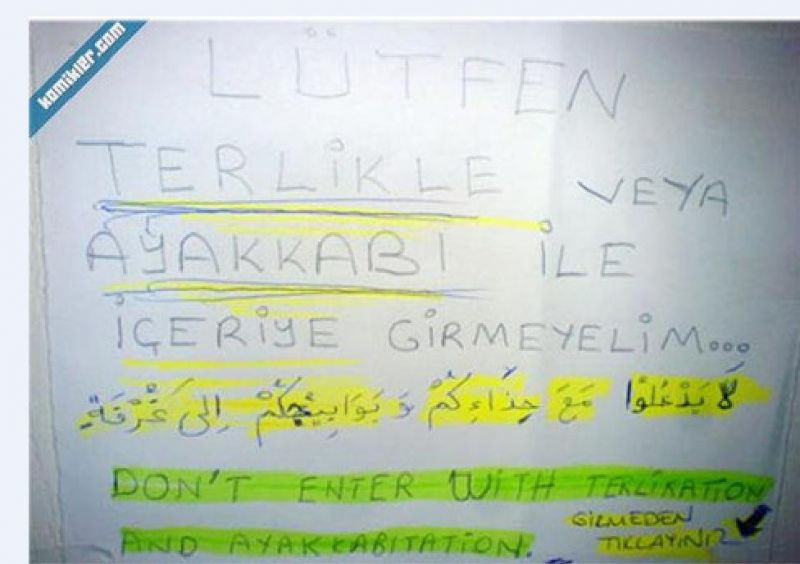 komikler.com
LÜTFEN
TERLİKLE VEYA
AYAKKABI İLE
İÇERİYE GİRMEYELİM...
لَا يَدْخُلُوا مَعَ حِذَاءِكُمْ وَ بَوَابِيجِكُمْ اِلىَ غُرْفَةٍ
DON'T ENTER WITH TERLIKATION
AND AYAKKABITATION.
GİRMEDEN
TIKLAYINIZ